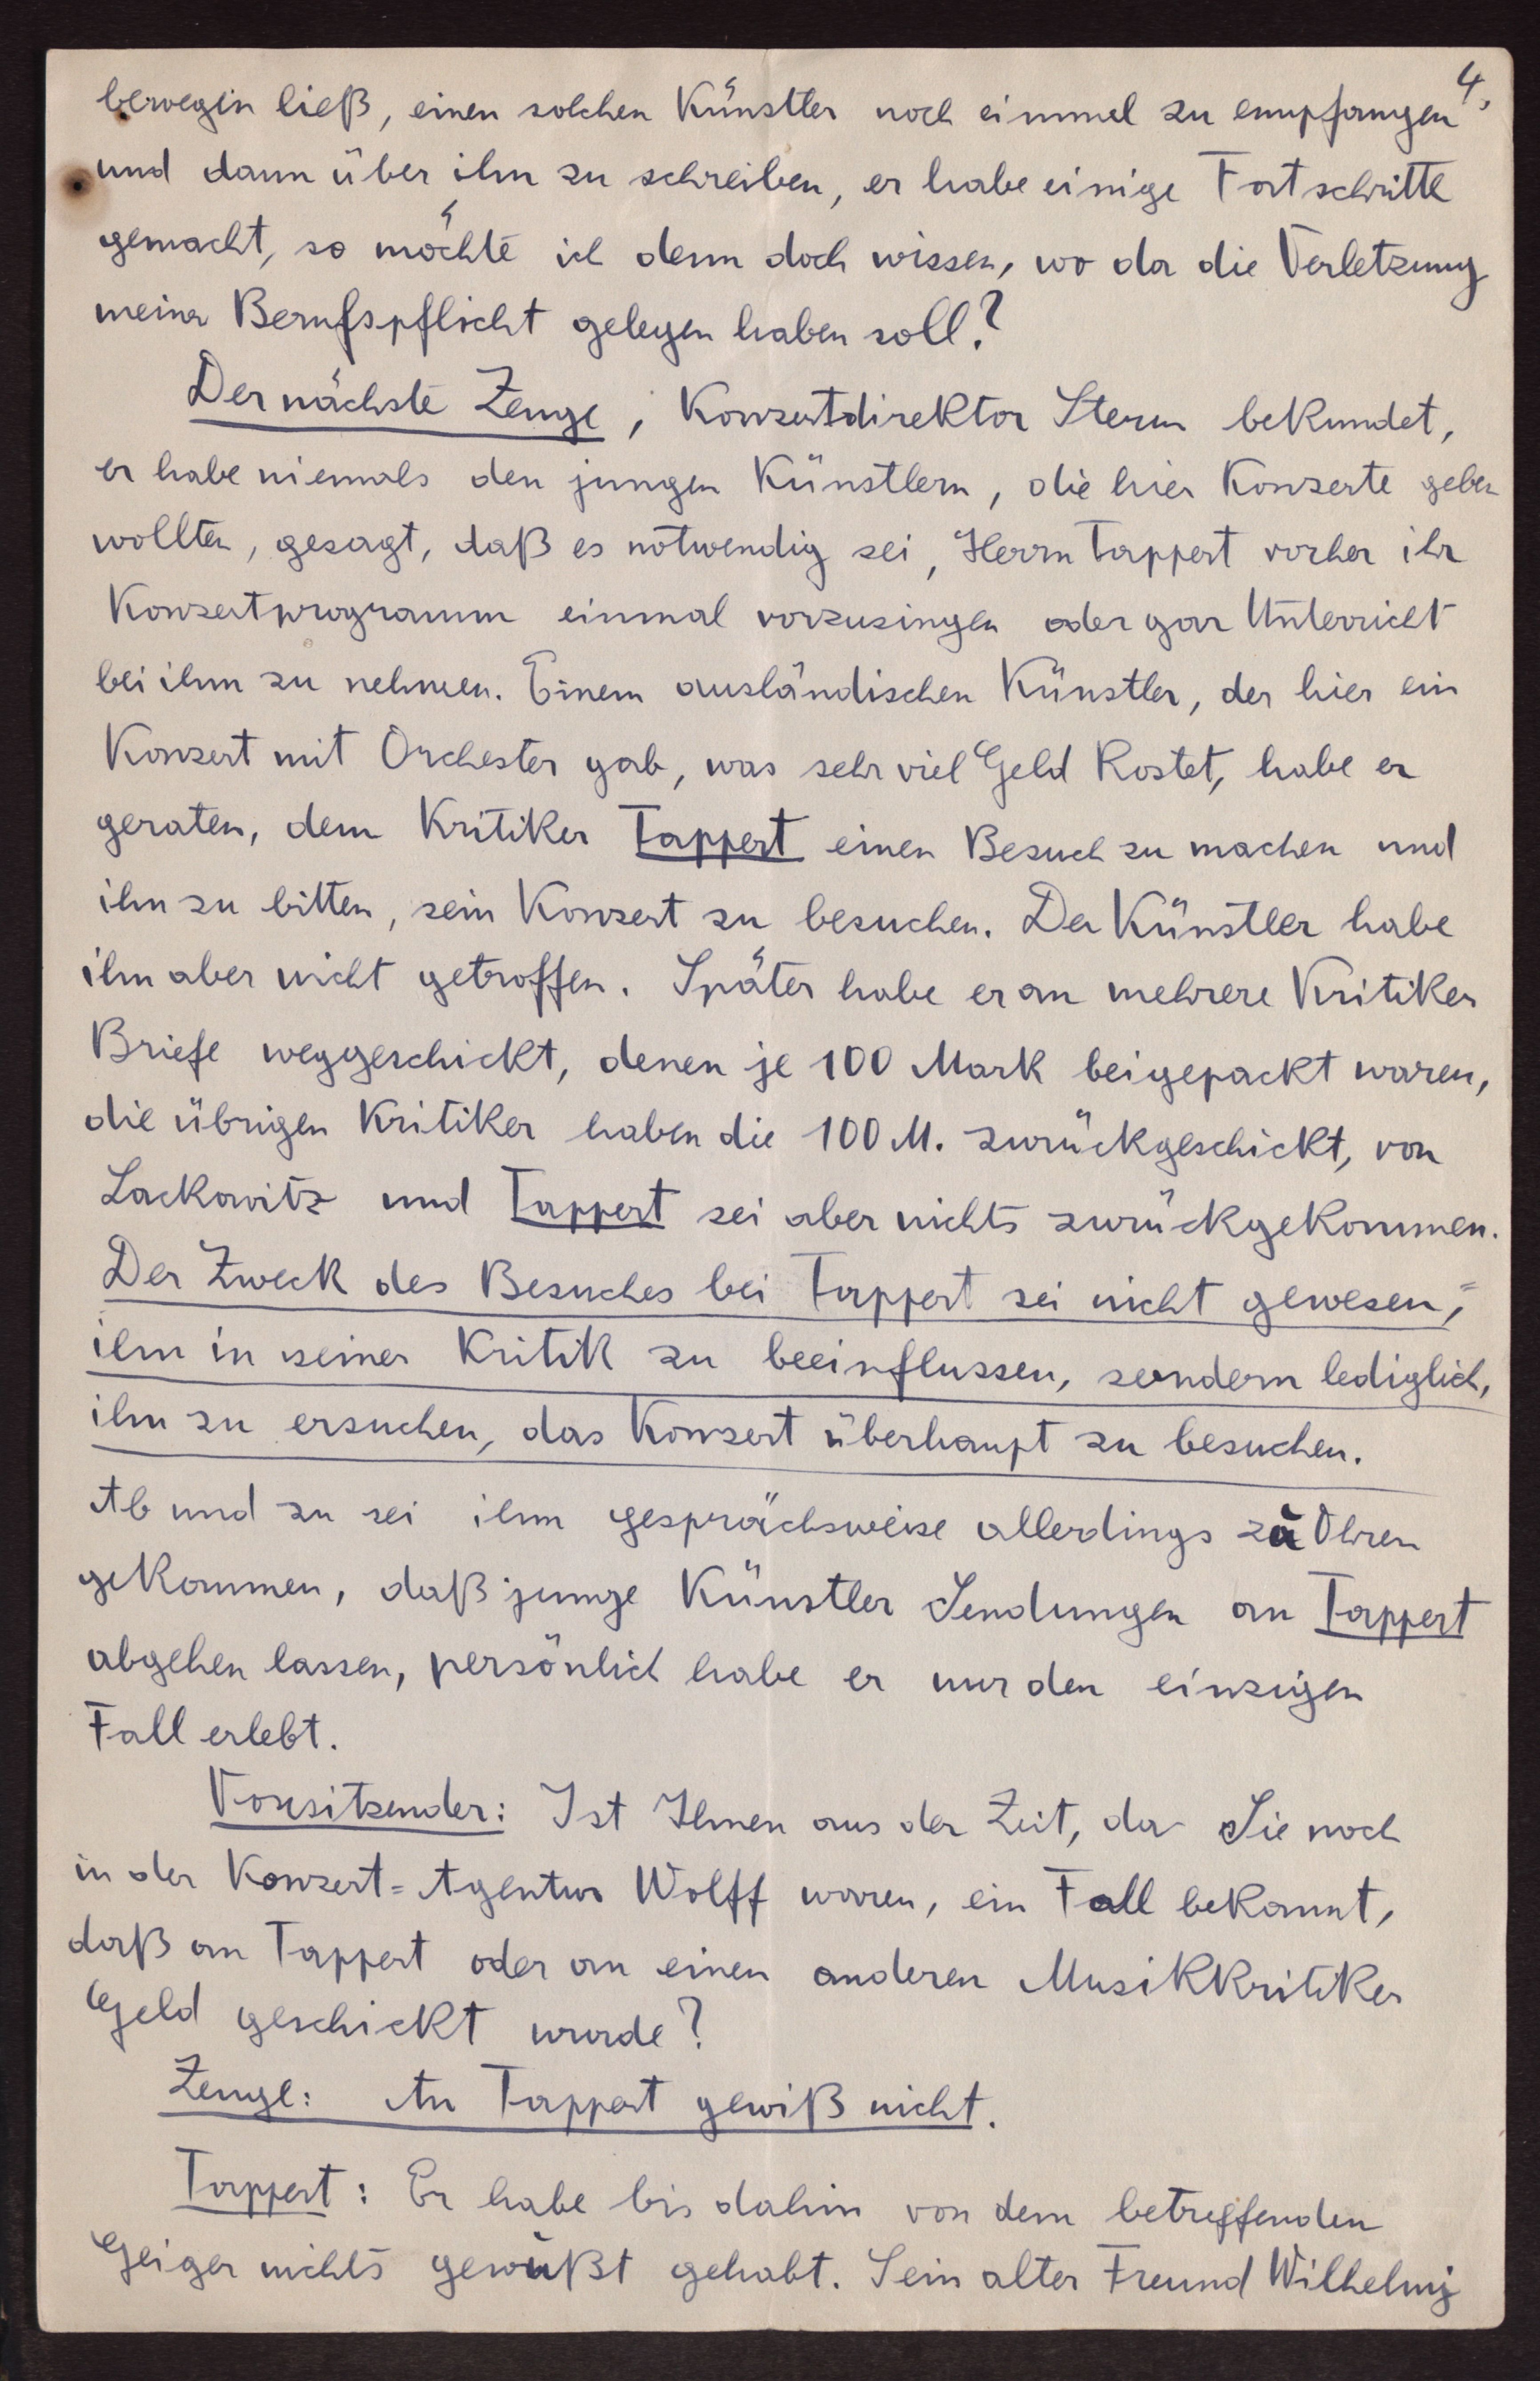 4.
bewegen ließ, einen solchen Künstler noch einmal zu empfangen
und dann über ihn zu schreiben, er habe einige Fortschritte
gemacht, so möchte ich denn doch wissen, wo da die Verletzung
meiner Berufspflicht gelegen haben soll?
Der nächste Zeuge, Konzertdirektor Stern bekundet,
er habe niemals den jungen Künstlern, die hier Konzerte geben
wollten, gesagt, daß es notwendig sei, Herrn Tappert vorher ihr
Konzertprogramm einmal vorzusingen oder gar Unterricht
bei ihm zu nehmen. Einem ausländischen Künstler, der hier ein
Konzert mit Orchester gab, was sehr viel Geld kostet, habe er
geraten, dem Kritiker Tappert einen Besuch zu machen und
ihn zu bitten, sein Konzert zu besuchen. Der Künstler habe
ihn aber nicht getroffen. Später habe er an mehrere Kritiker
Briefe weggeschickt, denen je 100 Mark beigepackt waren,
die übrigen Kritiker haben die 100 M. zurückgeschickt, von
Lackowitz und Tappert sei aber nichts zurückgekommen.
Der Zweck des Besuches bei Tappert sei nicht gewesen,
ihn in seiner Kritik zu beeinflussen, sondern lediglich,
ihn zu ersuchen, das Konzert überhaupt zu besuchen.
Ab und zu sei ihm gesprächsweise allerdings zu Ohren
gekommen, daß junge Künstler Sendungen an Tappert
abgehen lassen, persönlich habe er nur den einzigen
Fall erlebt.
Vorsitzender: Ist Ihnen aus der Zeit, da Sie noch
in der Konzert=Agentur Wolff waren, ein Fall bekannt,
daß an Tappert oder an einen anderen Musikkritiker
Geld geschickt wurde?
Zeuge: An Tappert gewiß nicht.
Tappert: Er habe bis dahin von dem betreffenden
Geiger nichts gewußt gehabt. Sein alter Freund Wilhelmj